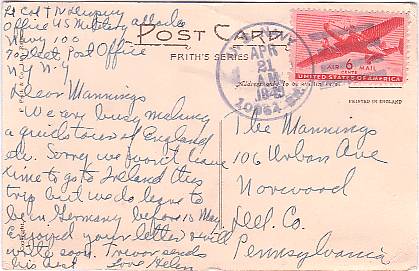 Lt Col T N Dupuy
Office US Military Attache
Navy 100
Fleet Post Office
N.Y. N.Y.
POST CARD
FRITH'S SERIES
APR
21
A.M.
AIR 6 MAIL
CENTS
UNITED STATES OF AMERICA
Address
PRINTED IN ENGLAND
Dear Mannings
We are busy making
a quick tour of England
etc. Sorry we won't have
time to go to Ireland this
trip but we do have to
be in Germany before 15 May.
Enjoyed your letter & will
write soon. Trevor sends
his best Love Helen
The Mannings
106 Urban Ave
Norwood
Del. Co.
Pennsylvania